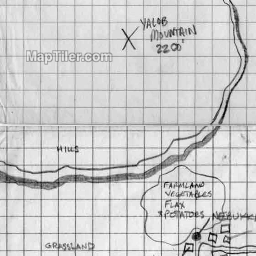 YALOB
MOUNTAIN
2200'
MapTiler.com
HILLS
FARMLAND
VEGETABLES
FLAX
POTATOES
GRASSLAND